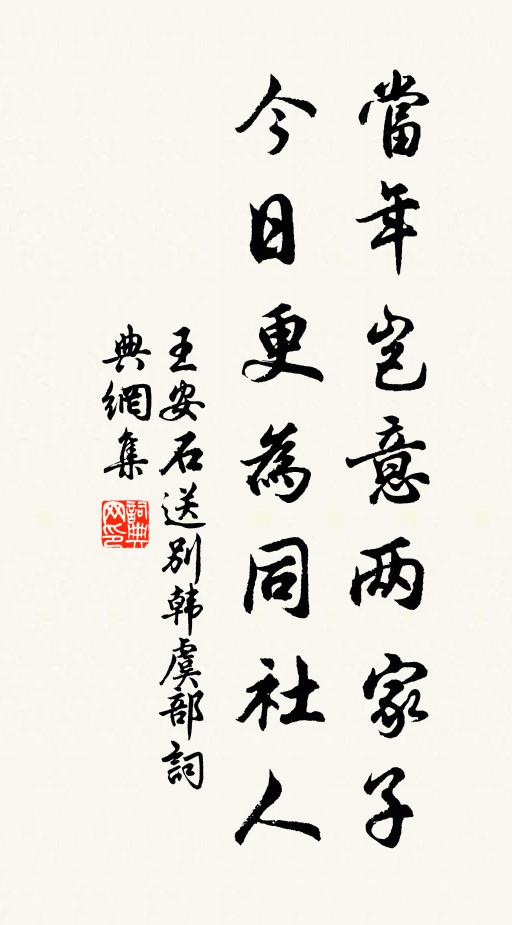 當年豈意两家子
今日更為同社人
王安石送别韩虞部詞
典網集
詞典网印